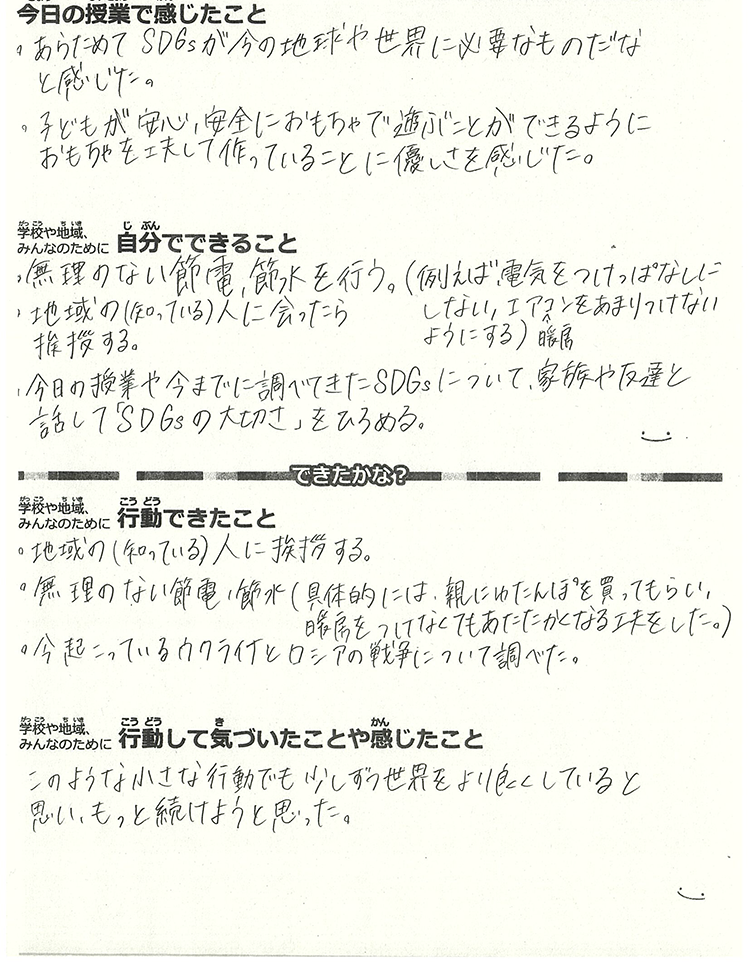 今日の授業で感じたこと
・あらためてSDGsが今の地球や世界に必要なものだな
と感じた。
・子どもが安心、安全におもちゃで遊ぶことができるように
おもちゃを工夫して作っていることに優しさを感じた。
がっこう ちいき
学校や地域、
みんなのために
じぶん
自分でできること
・無理のない節電、節水を行う。(例えば、電気をつけっぱなしに
しない、エアコンをあまりつけない
ようにする) 暖房
・地域の(知っている)人に会ったら
挨拶する。
・今日の授業や今までに調べてきたSDGsについて、家族や友達と
話して「SDGsの大切さ」をひろめる。
できたかな?
がっこう ちいき
学校や地域、
みんなのために
こうどう
行動できたこと
・地域の(知っている)人に挨拶する。
・無理のない節電、節水(具体的には、親にゆたんぽを買ってもらい、
暖房をつけなくてもあたたかくなる工夫をした。)
・今起こっているウクライナとロシアの戦争について調べた。
がっこう ちいき
学校や地域、
みんなのために
こうどう き かん
行動して気づいたことや感じたこと
このような小さな行動でも少しずつ世界をより良くしていると
思い、もっと続けようと思った。